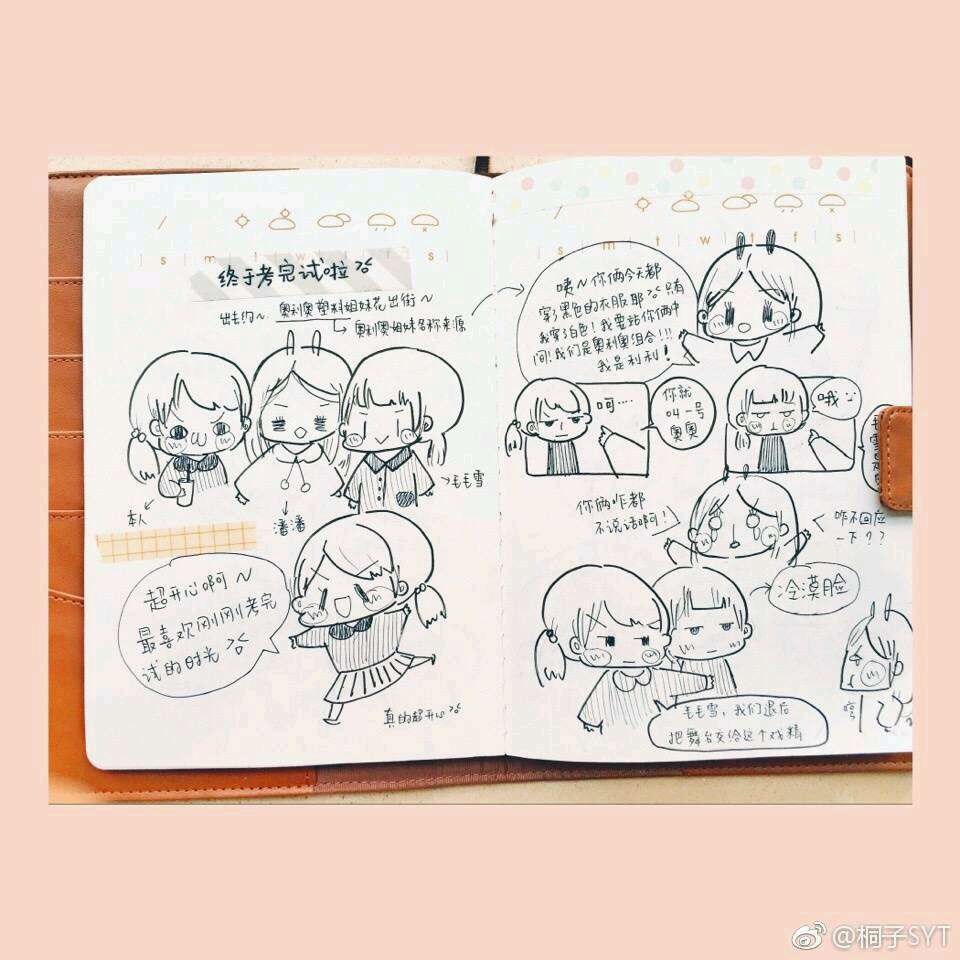 /
s m t w t f s
终于考完试啦
出去约~ 奥利奥塑料姐妹花出街~
奥利奥姐妹名称来源
本人
潘潘
毛毛雪
超开心啊~
最喜欢刚刚考完
试的时光
真的超开心
/
s m t w t f s
咦~你俩今天都
穿黑色的衣服耶 只有
我穿了白色!我要站你俩中
间!我们是奥利奥组合!!!
我是利利!
呵....
你就
叫一号
奥奥
哦
毛毛
雪是
你俩咋都
不说话啊!
咋不回应
一下??
冷漠脸
毛毛雪,我们退后
把舞台交给这个戏精
哼
@桐子SYT